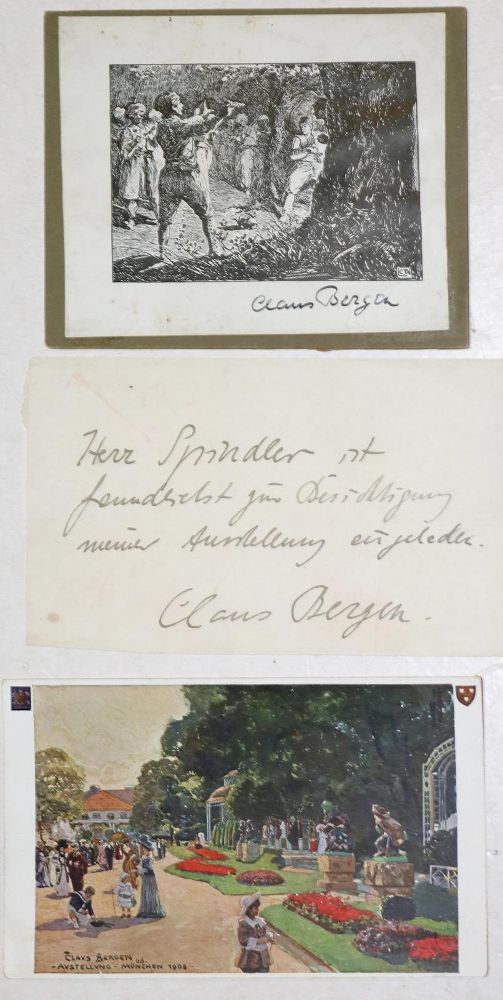 Claus Bergen
Herr Spindler ist
freundlichst zur Besichtigung
meiner Ausstellung eingeladen.
Claus Bergen.
CLAUS BERGEN
- AUSTELLUNG - MÜNCHEN 1908